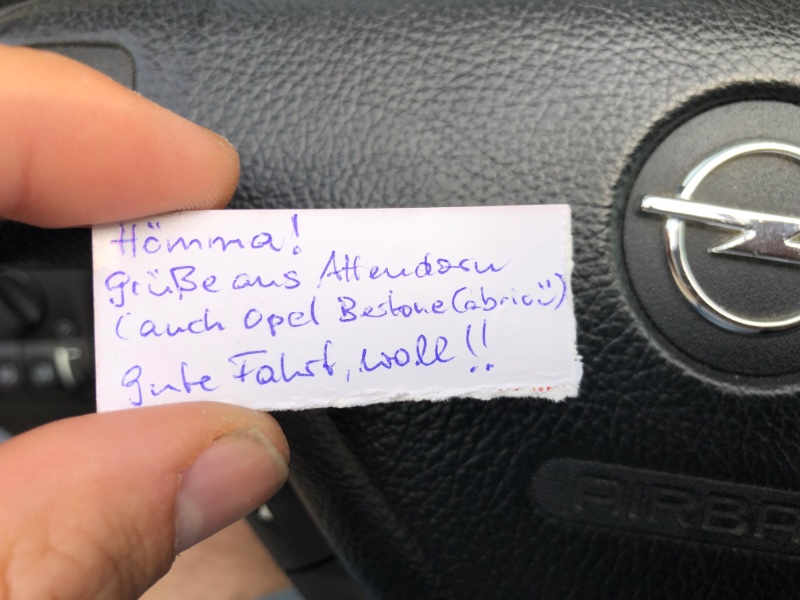 Hömma!
Grüße aus Attendorn
(auch Opel Bertone Cabrio ü)
Gute Fahrt, woll!!
AIRBA